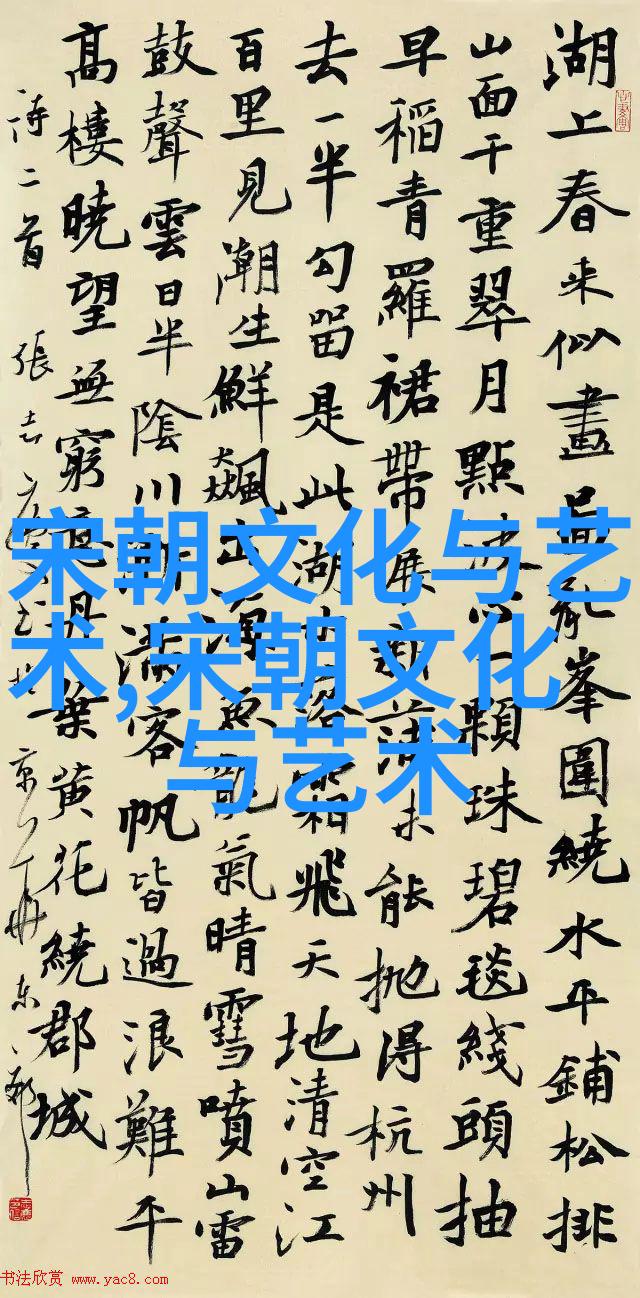 湖上春来似畫啚乱峯圍繞水平鋪松排
山面千重翠月點波心一顆珠碧毯綫頭抽
早稻青羅裙帶展新蒲未能抛得杭州
去一半勾留是此湖水落霜飛天地清空江
百里見潮生鮮飈出海魚龍氣晴雪噴山雷
鼓聲雲日半陰川漸滿客帆皆過浪難平
高樓曉望無窮意丹葉黄花繞郡城
詩二首 張志
宋朝文化与艺
术,宋朝文化
与艺术
书法欣赏 www.yac8.com